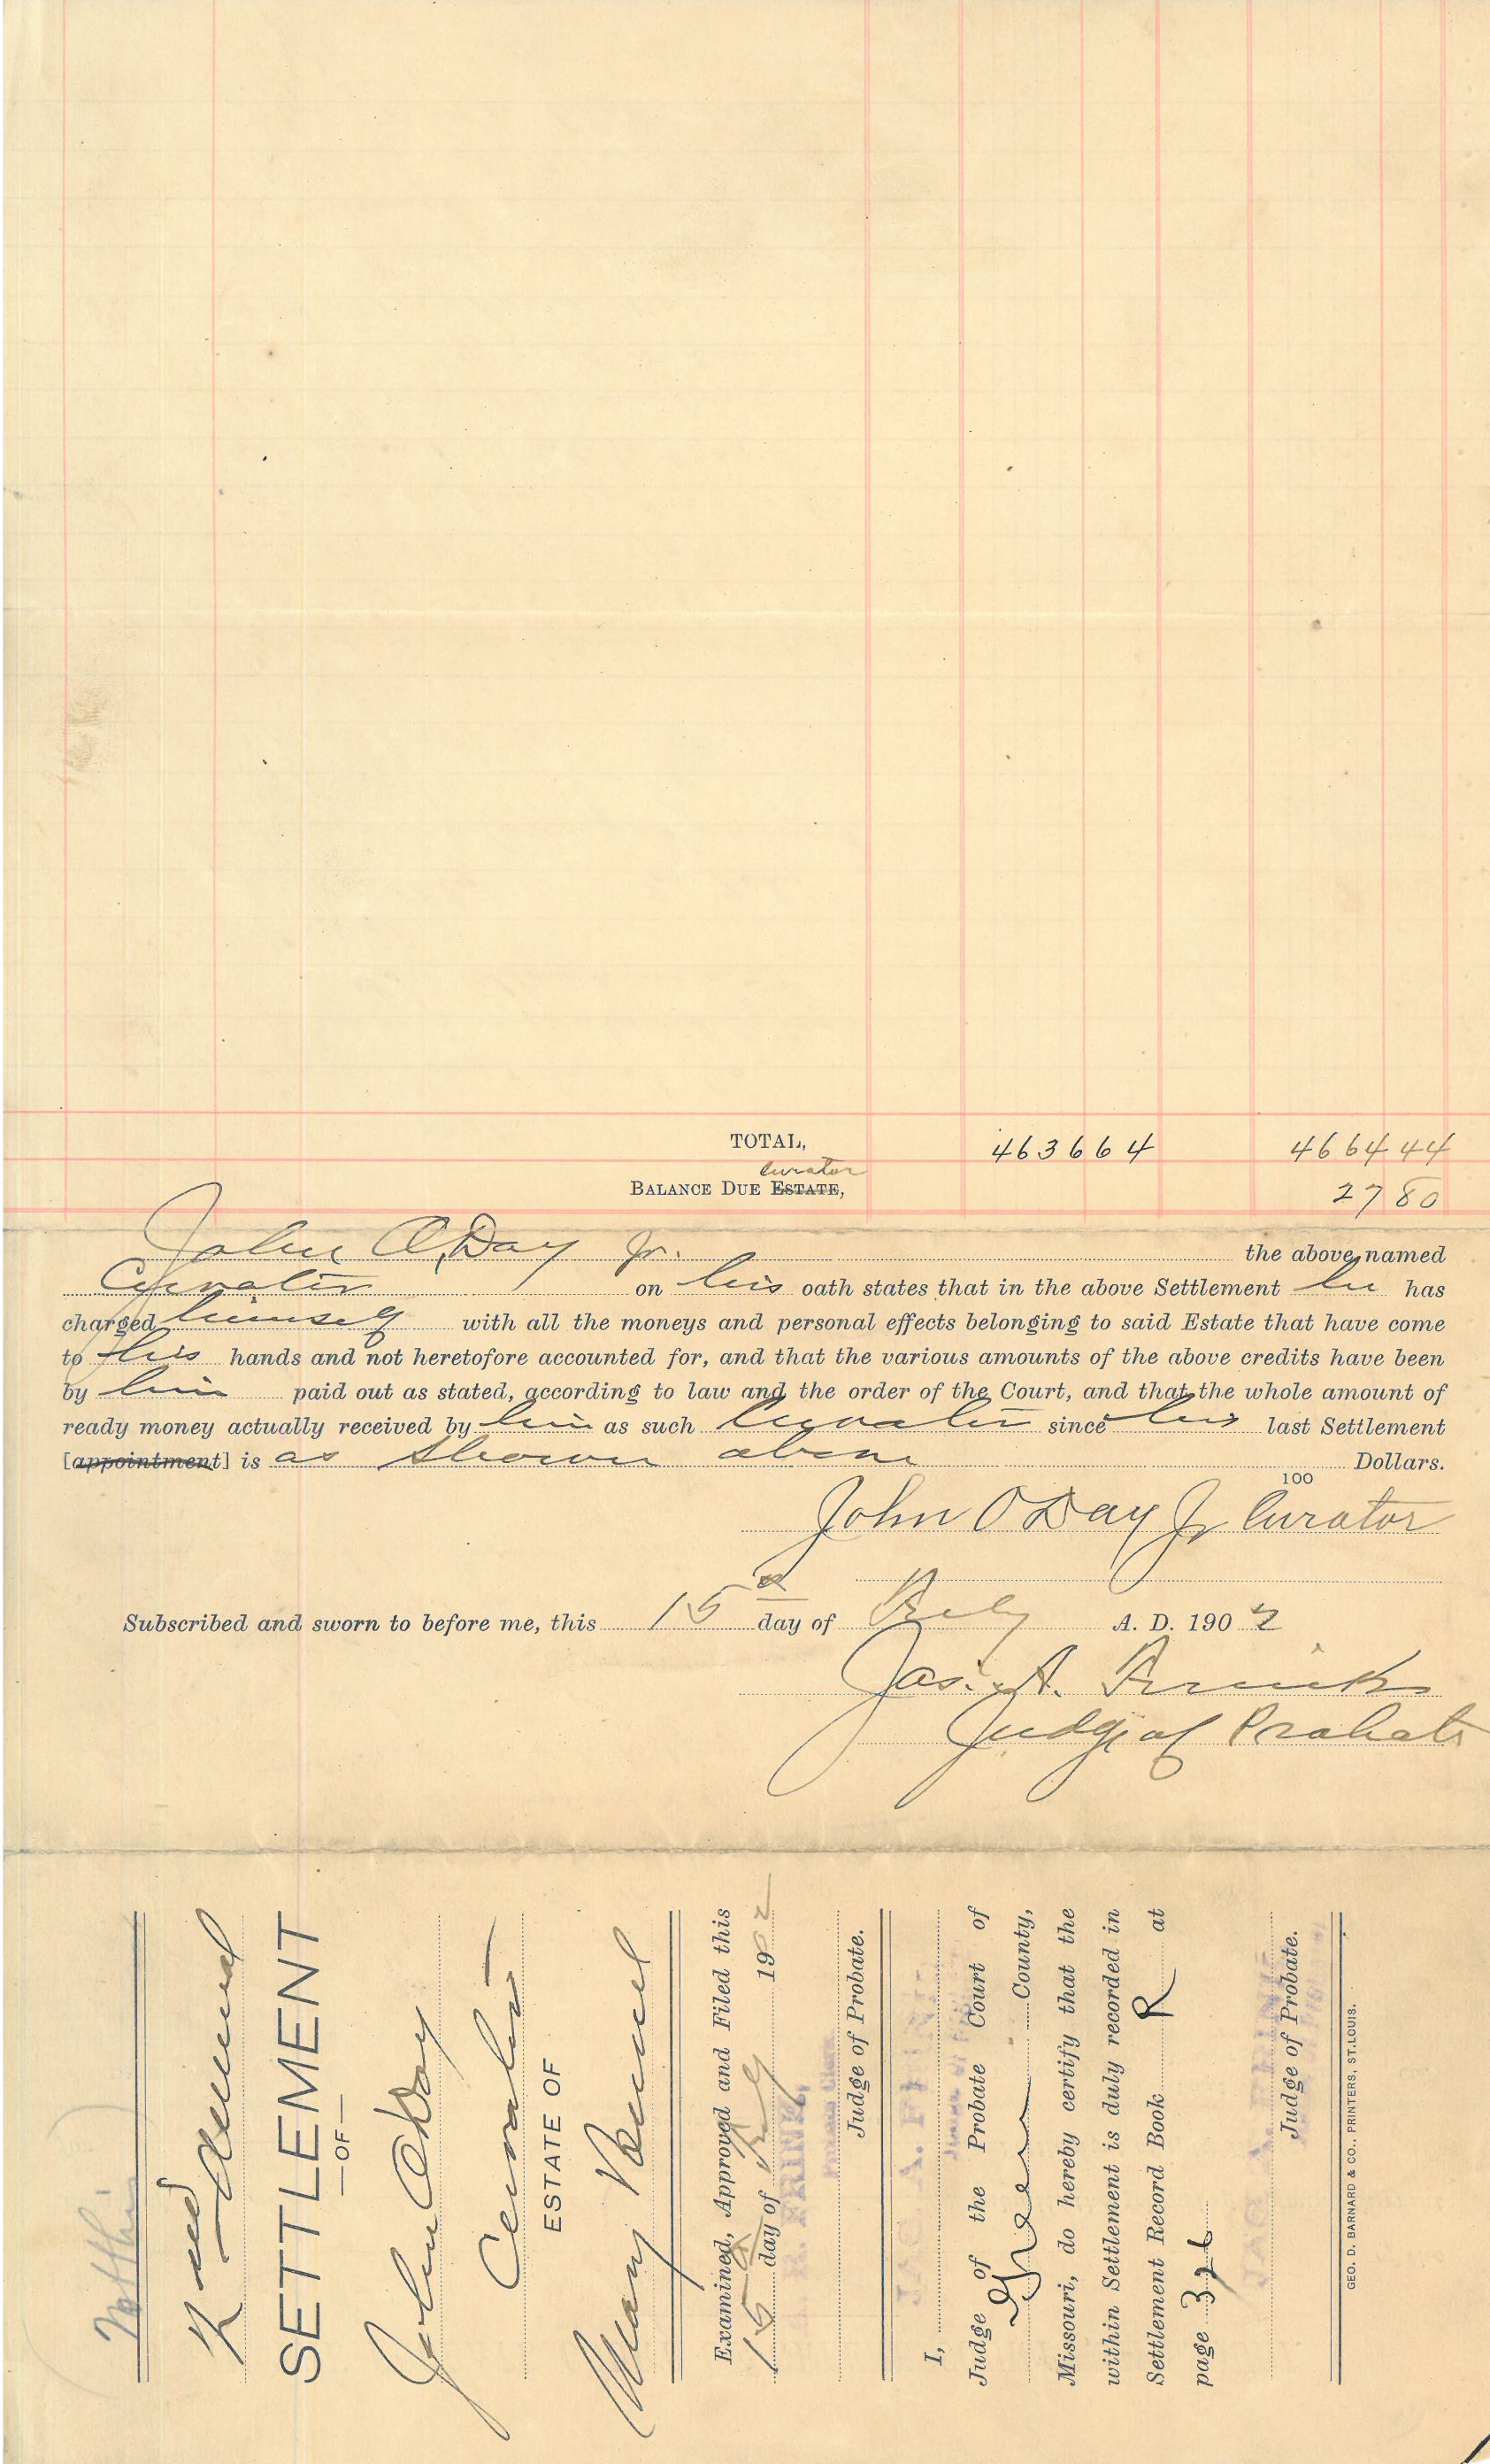 TOTAL, 4636 64 4664 44
Curator
BALANCE DUE ESTATE, 27 80
John O'Day Jr. the above named
Curator on his oath states that in the above Settlement he has
charged himself with all the moneys and personal effects belonging to said Estate that have come
to his hands and not heretofore accounted for, and that the various amounts of the above credits have been
by him paid out as stated, according to law and the order of the Court, and that the whole amount of
ready money actually received by him as such Curator since his last Settlement
[appointment] is as shown above Dollars.
100
John O'Day Jr Curator
Subscribed and sworn to before me, this 15 day of Feby A. D. 1902
Jas. A.
Judge of Probate
2nd Annual
SETTLEMENT
—OF—
John O'Day
Curator
ESTATE OF
Mary
Examined, Approved and Filed this
15 day of Feby 1902
Judge of Probate.
I,
Judge of the Probate Court of
Green County,
Missouri, do hereby certify that the
within Settlement is duly recorded in
Settlement Record Book R at
page 326
Judge of Probate.
GEO. D. BARNARD & CO., PRINTERS, ST. LOUIS.